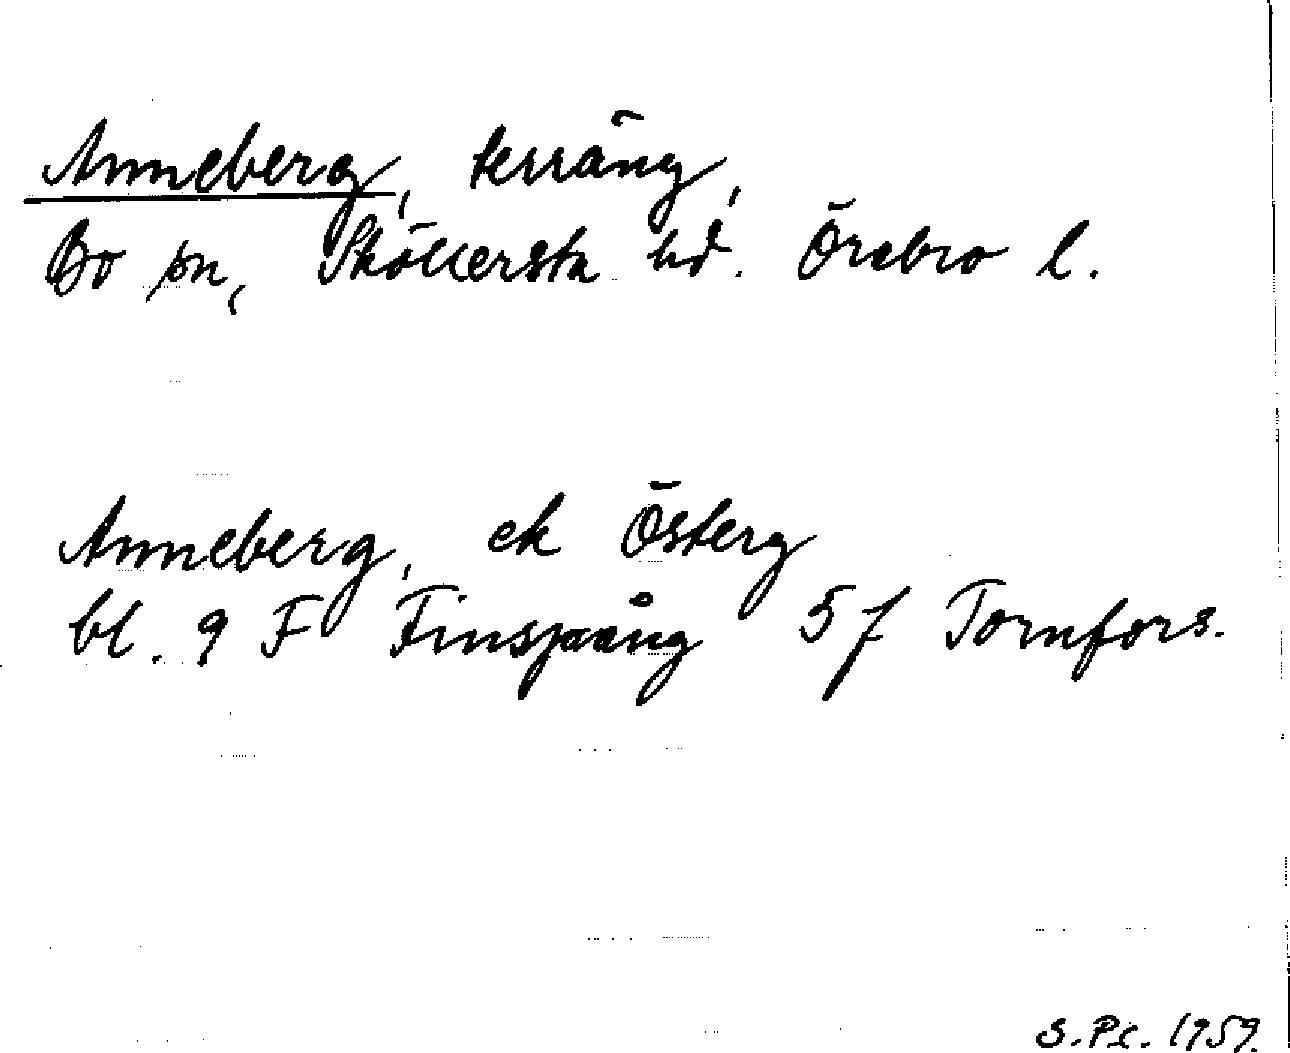 Anneberg, terräng,
Bo sn, Sköllersta hd. Örebro l.
Anneberg, ek Österg
bl. 9 F Finspång 5f Tomfors.
S.Pc. 1959.